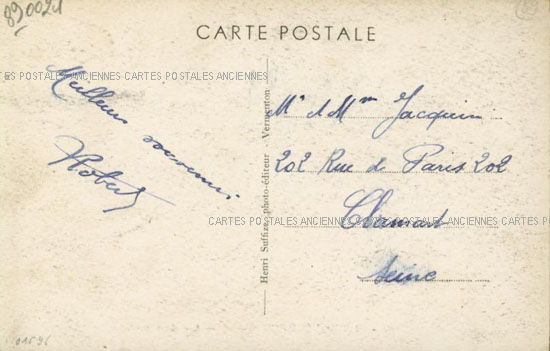 890021
CARTE POSTALE
CARTES POSTALES ANCIENNES CARTES POSTALES ANCIENNES
Meilleurs souvenirs.
Robert
Henri Suffize, photo-éditeur Vermenton
Mr & Mme Jacquin
202 Rue de Paris 202
Clamart
Seine
CARTES POSTALES ANCIENNES CARTES POSTALES ANCIENNES CARTES POS